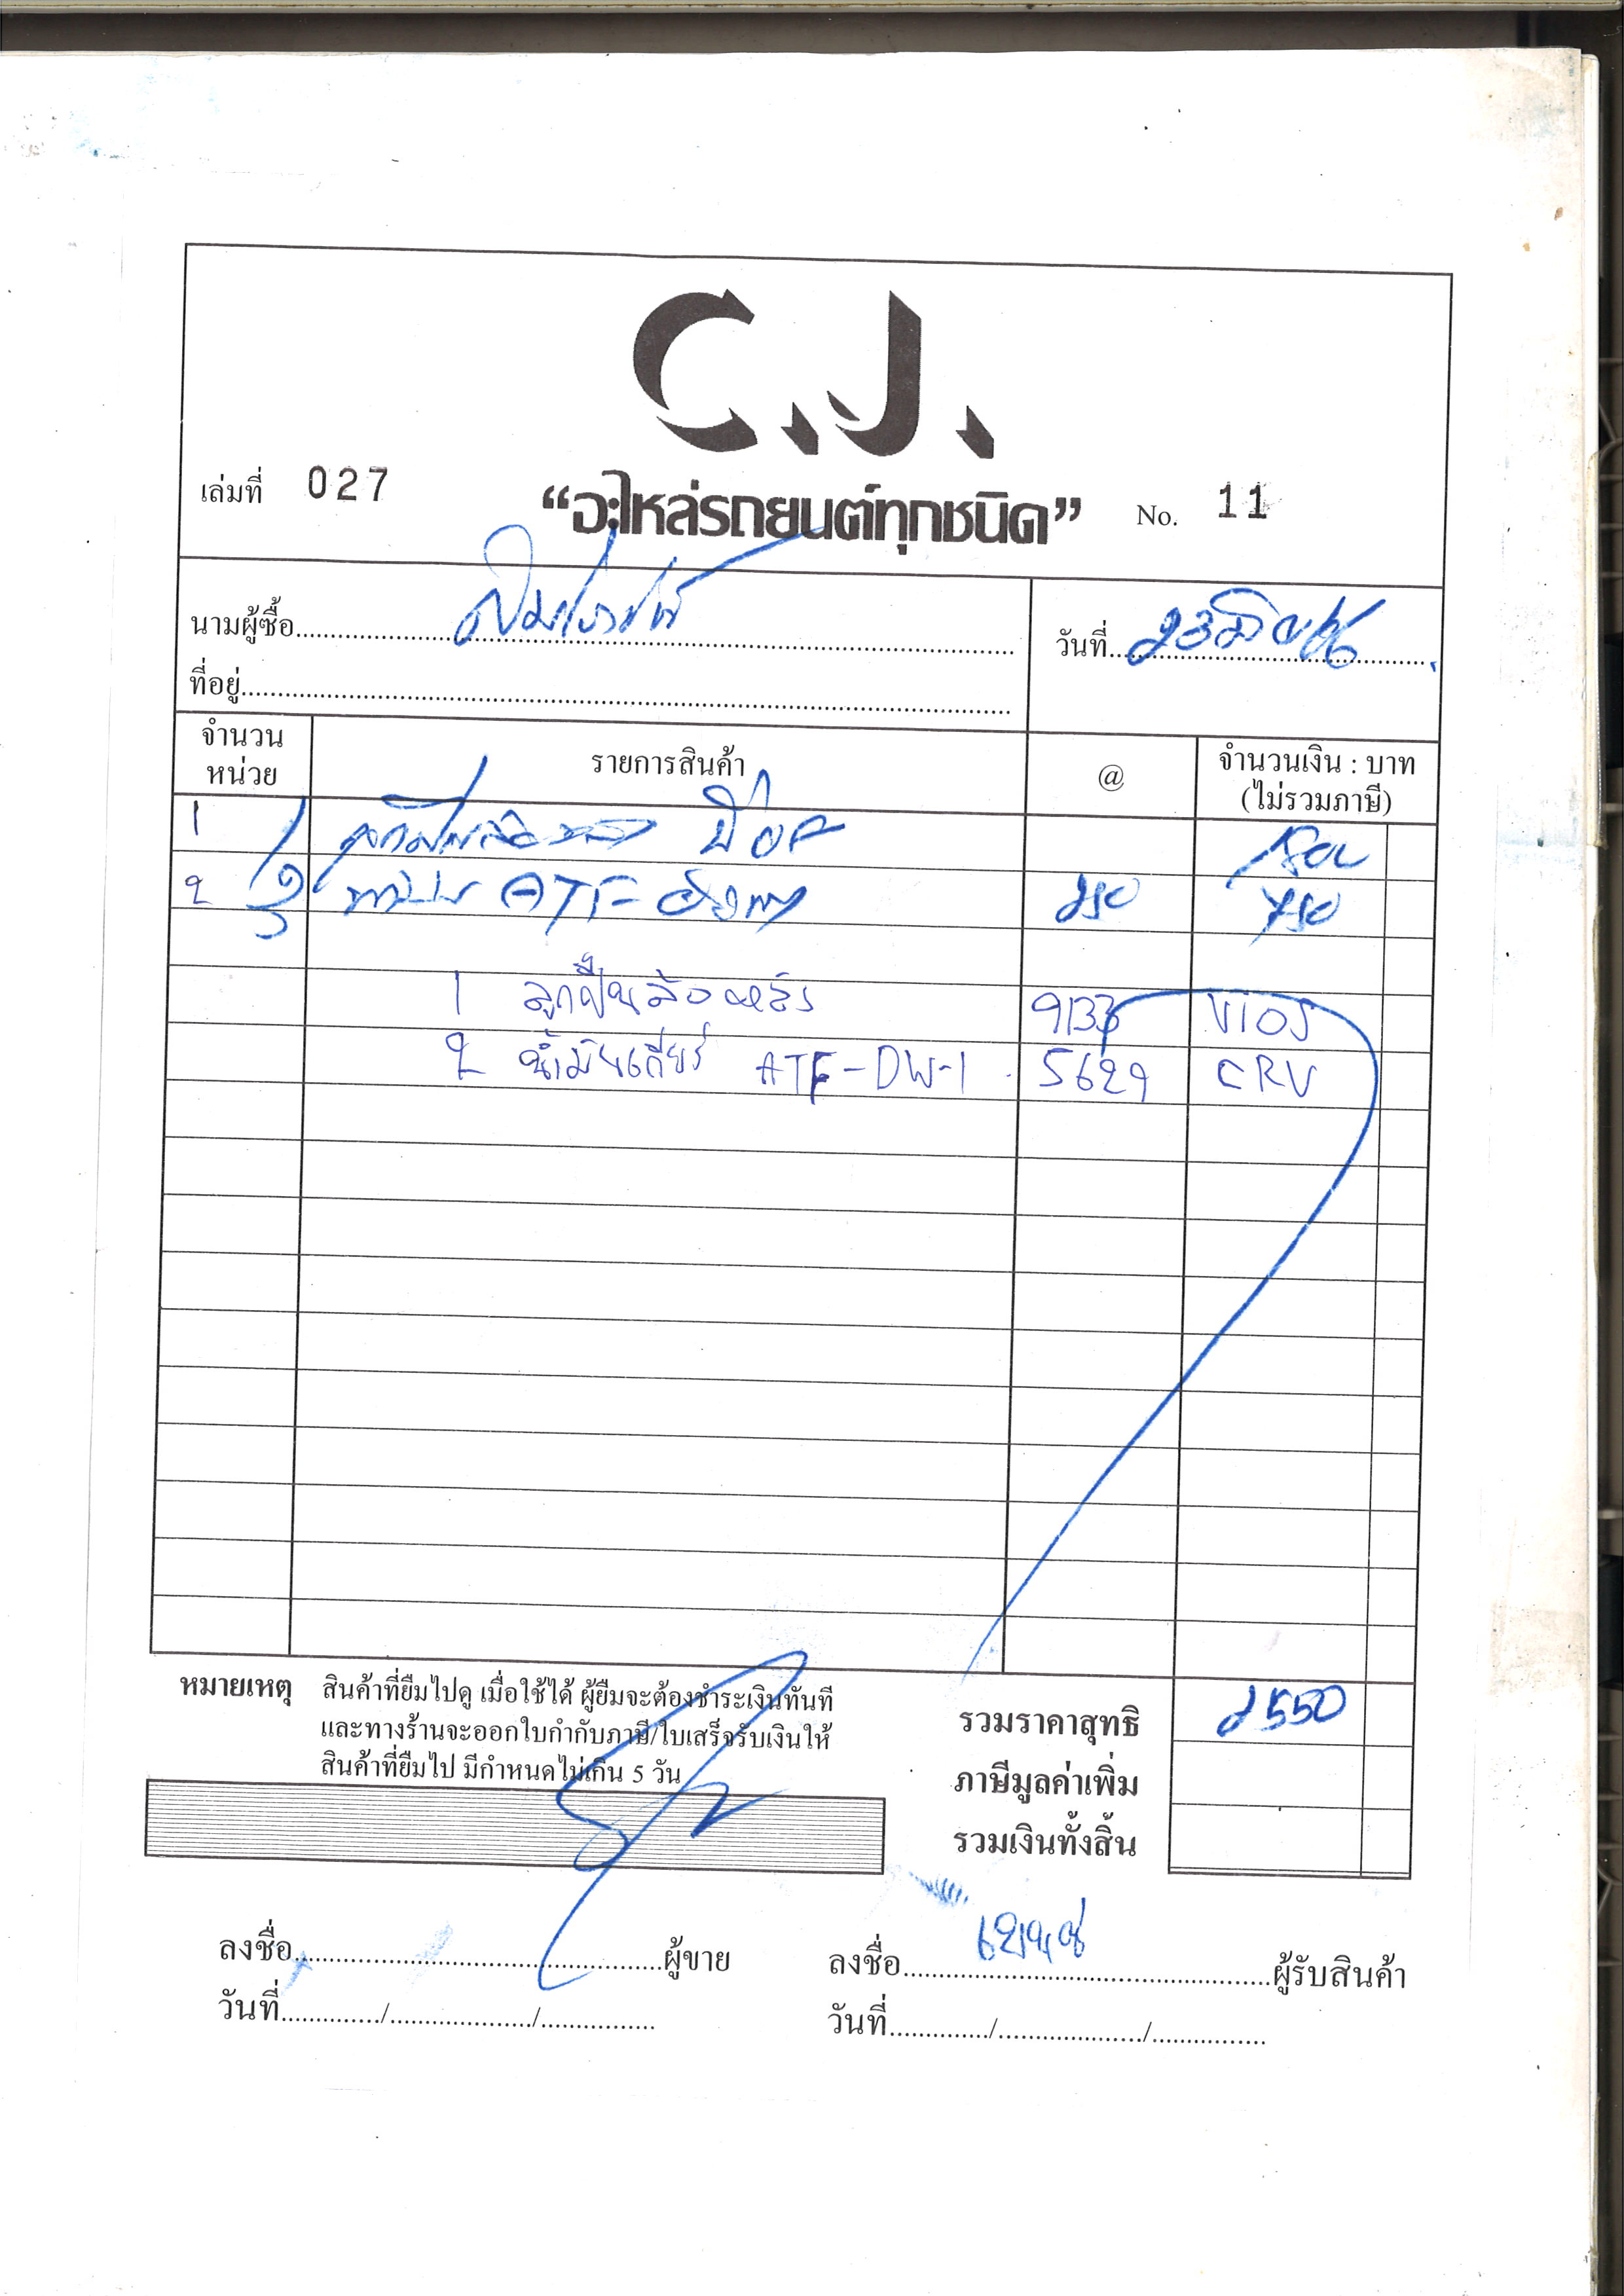 C.J.
เล่มที่ 027 “อะไหล่รถยนต์ทุกชนิด” No. 11
นามผู้ซื้อ
วันที่ 23
ที่อยู่
จำนวนหน่วย รายการสินค้า @ จำนวนเงิน : บาท (ไม่รวมภาษี)
1
2 ATF 250 750
1 ลูกปืนล้อหลัง 9133 VIOS
2 น้ำมันเกียร์ ATF-DW-1 5629 CRV
หมายเหตุ สินค้าที่ยืมไปดู เมื่อใช้ได้ ผู้ยืมจะต้องชำระเงินทันที
และทางร้านจะออกใบกำกับภาษี/ใบเสร็จรับเงินให้
สินค้าที่ยืมไป มีกำหนดไม่เกิน 5 วัน
รวมราคาสุทธิ 2550
ภาษีมูลค่าเพิ่ม
รวมเงินทั้งสิ้น
ลงชื่อ ผู้ขาย ลงชื่อ ผู้รับสินค้า
วันที่ / / วันที่ / /